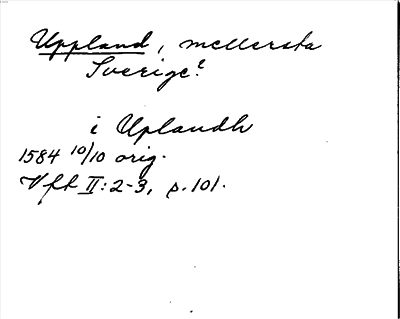 Uppland, mellersta
Sverige?
i Uplandh
1584 10/10 orig.
Vft II:2-3, p. 101.